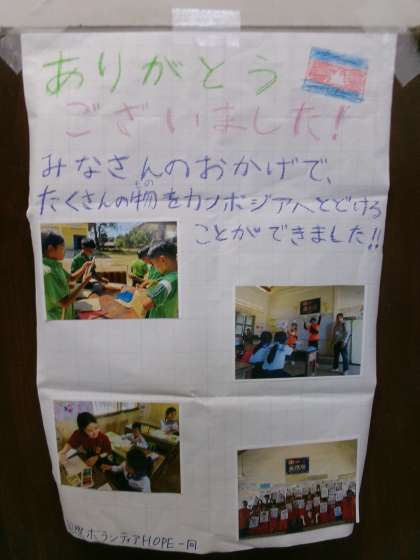 ありがとう
ございました!
みなさんのおかげで、
たくさんの物をカンボジアへとどける
もの
ことができました!!
ボランティアHOPE一同